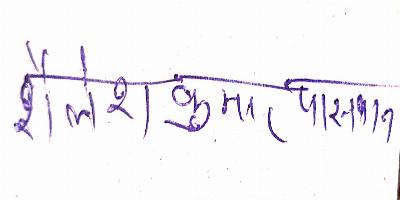 शैलेश कुमार पासवान